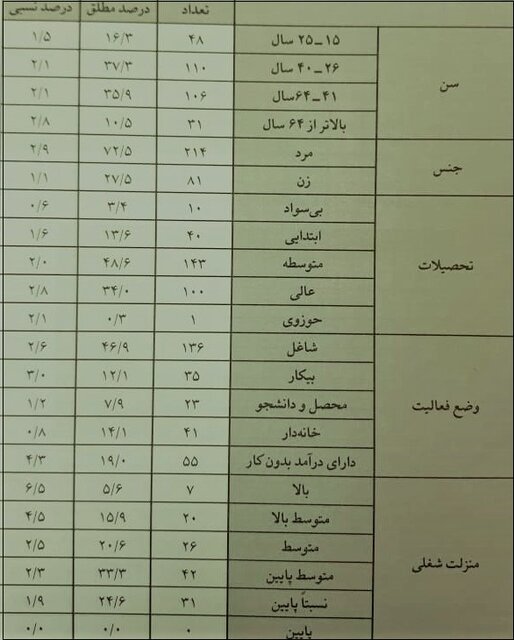 تعداد درصد مطلق درصد نسبی
سن ۱۵-۲۵ سال ۴۸ ۱۶/۳ ۱/۵
۲۶-۴۰ سال ۱۱۰ ۳۷/۳ ۲/۱
۴۱-۶۴سال ۱۰۶ ۳۵/۹ ۲/۱
بالاتر از ۶۴ سال ۳۱ ۱۰/۵ ۲/۸
جنس مرد ۲۱۴ ۷۲/۵ ۲/۹
زن ۸۱ ۲۷/۵ ۱/۱
تحصیلات بی‌سواد ۱۰ ۳/۴ ۰/۶
ابتدایی ۴۰ ۱۳/۶ ۱/۶
متوسطه ۱۴۳ ۴۸/۶ ۲/۰
عالی ۱۰۰ ۳۴/۰ ۲/۸
حوزوی ۱ ۰/۳ ۲/۱
وضع فعالیت شاغل ۱۳۶ ۴۶/۹ ۲/۶
بیکار ۳۵ ۱۲/۱ ۳/۰
محصل و دانشجو ۲۳ ۷/۹ ۱/۲
خانه‌دار ۴۱ ۱۴/۱ ۰/۸
دارای درآمد بدون کار ۵۵ ۱۹/۰ ۴/۳
منزلت شغلی بالا ۷ ۵/۶ ۶/۵
متوسط بالا ۲۰ ۱۵/۹ ۴/۵
متوسط ۲۶ ۲۰/۶ ۲/۵
متوسط پایین ۴۲ ۳۳/۳ ۲/۳
نسبتاً پایین ۳۱ ۲۴/۶ ۱/۹
پایین ۰ ۰/۰ ۰/۰